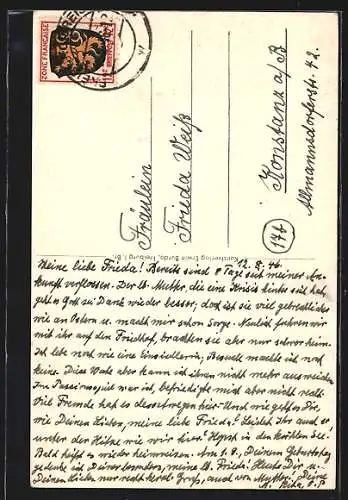 ZONE FRANÇAISE
Fräulein
Frieda Weiß
Konstanz a/B
Allmannsdorferstr. 42.
(17b)
12. 8. 46
Meine liebe Frieda! Bereits sind 8 Tage seit meiner An-
kunft verflossen. Der lb. Mutter, die eine Krisis hinter sich hat,
geht es Gott sei Dank wieder besser, doch ist sie viel gebrechlicher
wie an Ostern u. macht mir schon Sorge. Neulich fuhren wir
mit ihr auf den Friedhof, brachten sie aber nur schwer heim.
Ich lebe noch wie eine Einsiedlerin, Besuche machte ich noch
keine. Diese Woche aber kann ich ihnen nicht mehr ausweichen.
Im Passionsspiel war ich, befriedigte mich aber nicht recht.
Viel Fremde hat es deswegen hier. Und wie geht es Dir,
wie Deinen Lieben, meine liebe Frieda? Leidet Ihr auch so
unter der Hitze wie wir hier?
Bald hieß es wieder heimreisen. Am 1. 9., Deinem Geburtstag,
gedenke ich Deiner besonders, meine lb. Frieda!
Deine Lieben nur recht herzl. Gruß, auch von Mutter, Deine